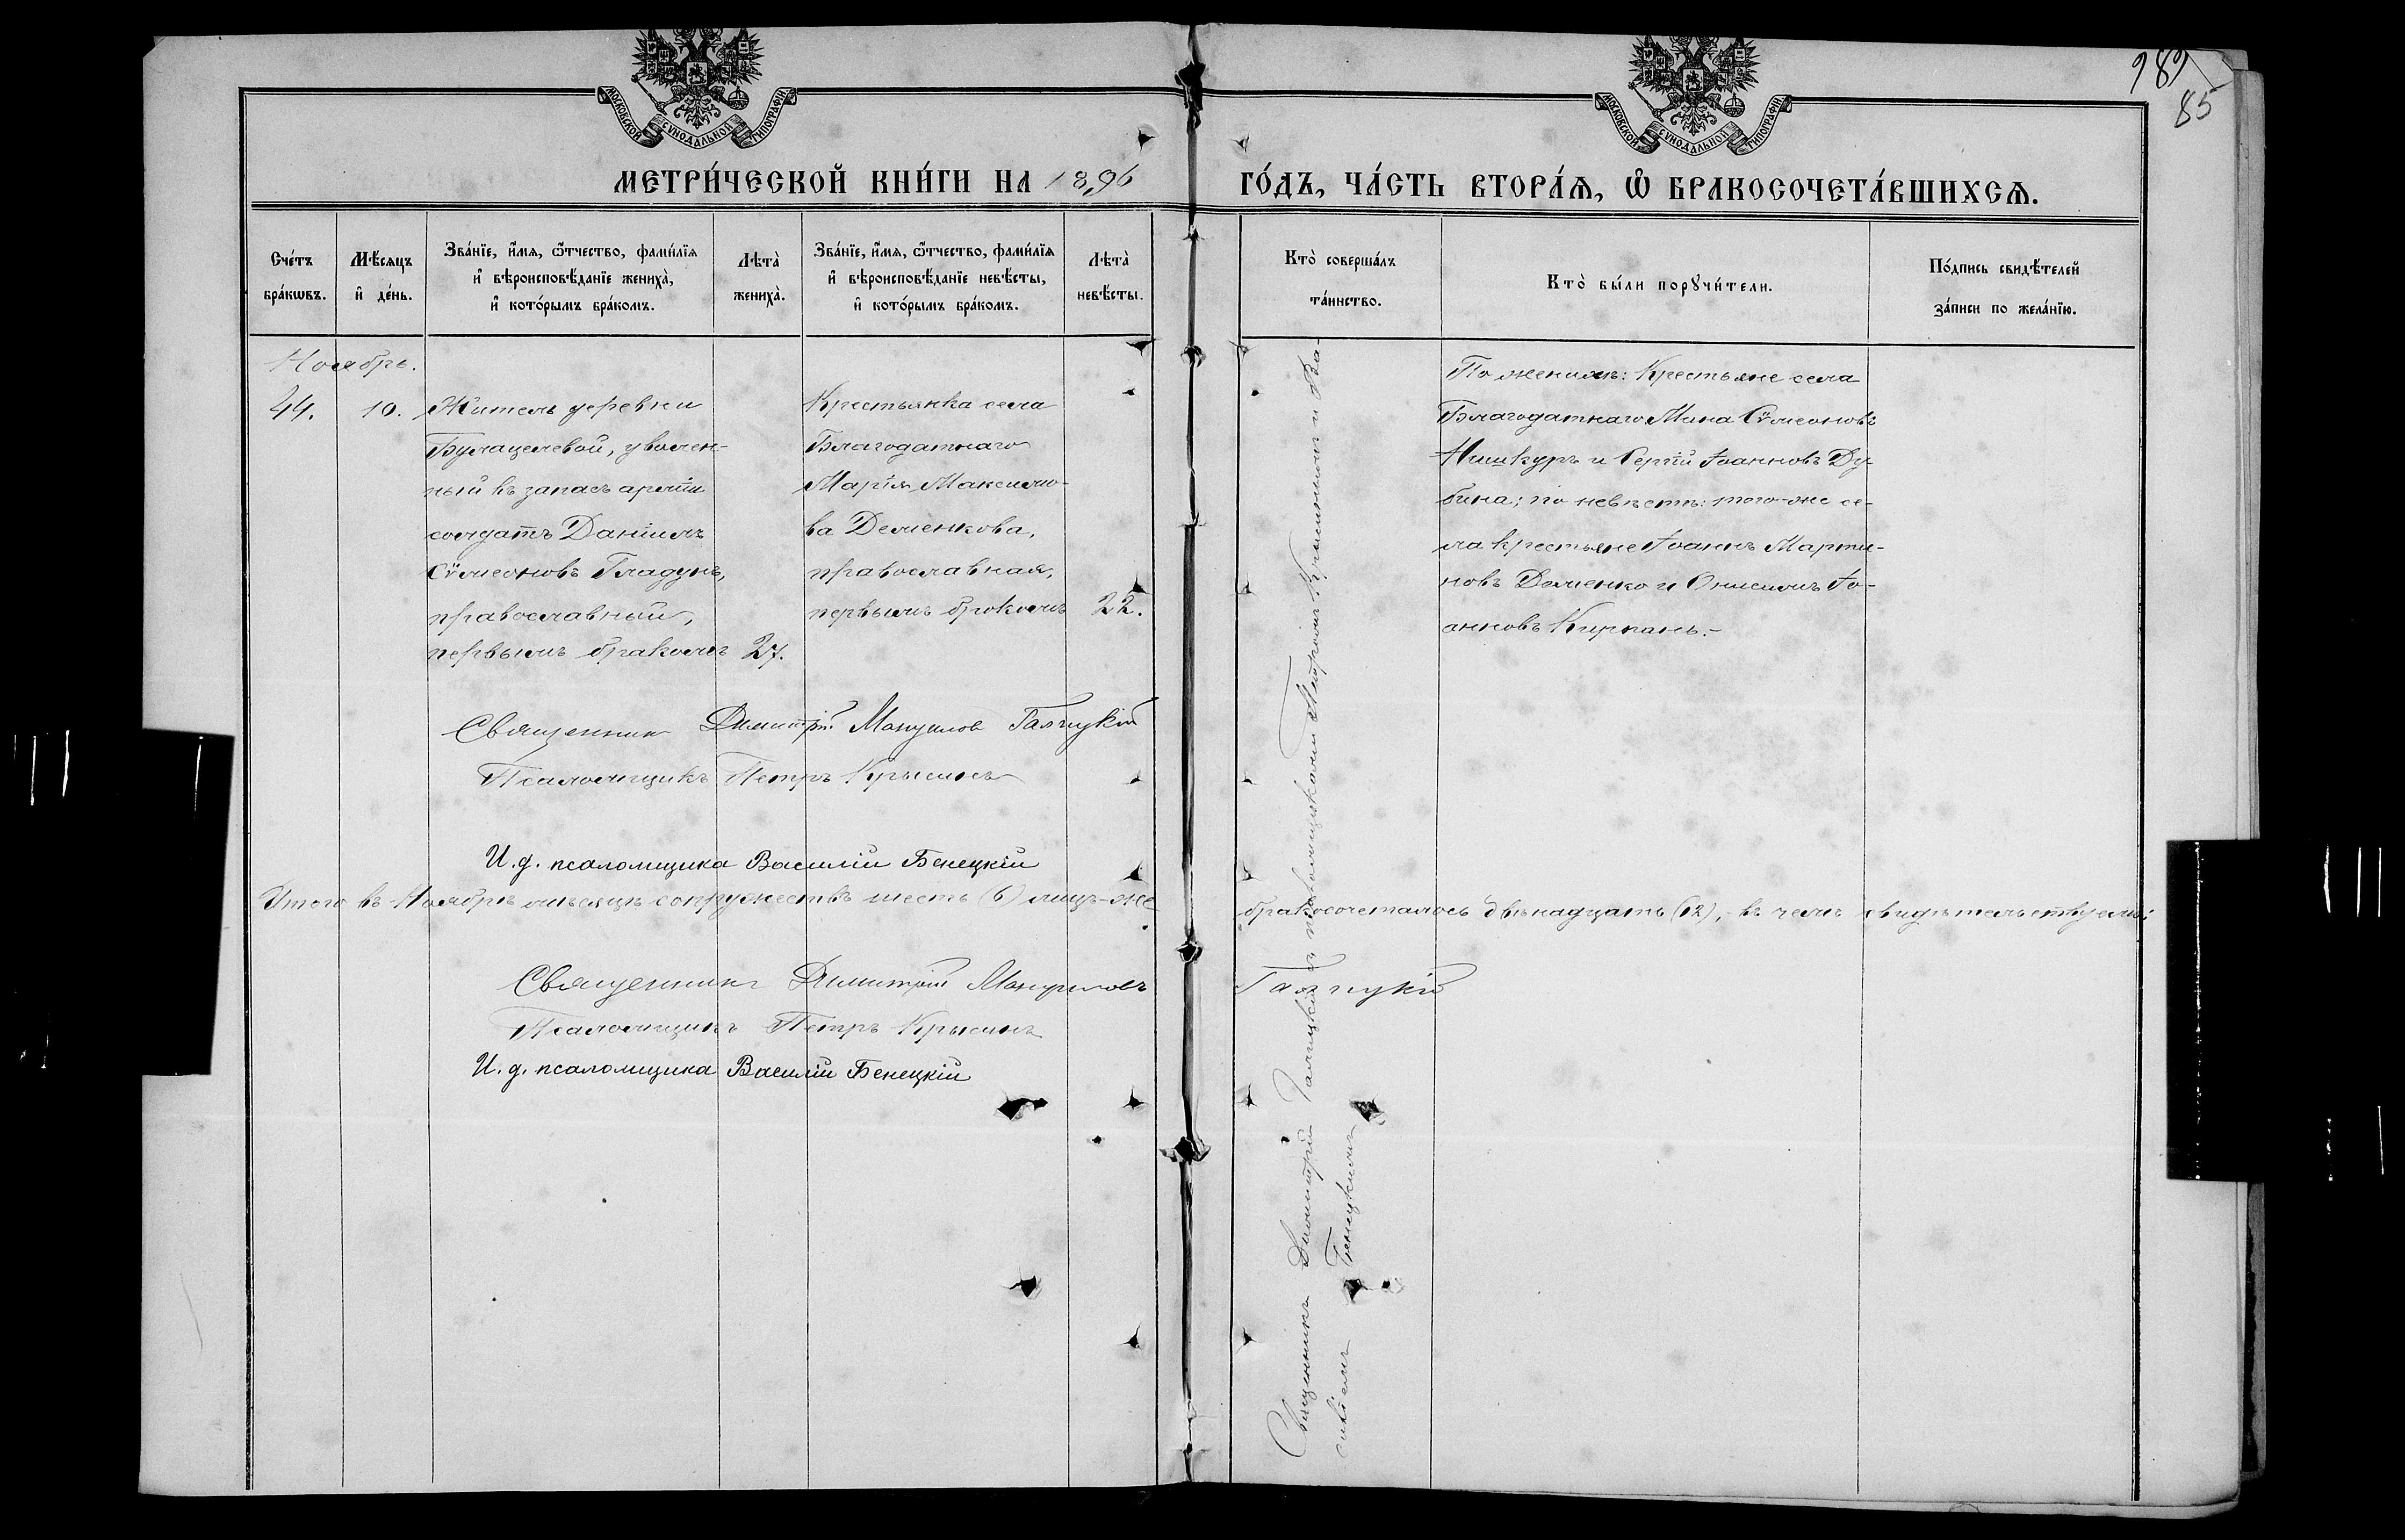 989
85
МОСКОВСКОЙ СУНОДАЛЬНОЙ ТИПОГРАФІИ
МОСКОВСКОЙ СУНОДАЛЬНОЙ ТИПОГРАФІИ
МЕТРИ́ЧЕСКОЙ КНИ́ГИ НА 1896
ГО́ДЪ, ЧА́СТЬ ВТОРА́Ѧ, Ѽ БРАКОСОЧЕТА́ВШИХСѦ.
Сче́тъ
бра́кѡвъ.
Мѣ́сяцъ
и҆ де́нь.
Зва́нїе, и҆́мѧ, ѻ҆́тчество, фами́лїѧ
и҆ вѣроисповѣ́данїе жениха̀,
и҆ кото́рымъ бра́комъ.
Лѣта̀
жениха̀.
Зва́нїе, и҆́мѧ, ѻ҆́тчество, фами́лїѧ
и҆ вѣроисповѣ́данїе невѣ́сты,
и҆ кото́рымъ бра́комъ.
Лѣта̀
невѣ́сты.
Кто̀ соверша́лъ
та́инство.
Кто̀ бы́ли порꙋчи́тели.
По́дпись свидѣ́телей
за́писи по жела́нїю.
Ноябрь.
44.
10.
Житель деревни
Булацелевой, уволен-
ный въ запасъ арміи
солдатъ Даніилъ
Сѵмеоновъ Гладунъ,
православный,
первымъ бракомъ
27.
Крестьянка села
Благодатнаго
Марія Максимо-
ва Деменкова,
православная,
первымъ бракомъ
22.
Священникъ Димитрій Галицкій съ псаломщиками Петромъ Крысинымъ и Ва-
силіемъ Бенецкимъ
По женихѣ: Крестьяне села
Благодатнаго Мина Сѵмеоновъ
Нишкуръ и Сергій Іоанновъ Ду-
бина; по невѣстѣ: того-же се-
ла крестьяне Іоаннъ Марти-
новъ Деменко и Онисимъ Іо-
анновъ Кирпань.-
Священникъ Димитрій Мануиловъ Галицкій
Псаломщикъ Петръ Крысинъ
И. д. псаломщика Василій Бенецкій
Итого въ Ноябрѣ мѣсяцѣ супружествъ шесть (6) лицъ-же бракосочеталось двѣнадцать (12), въ чемъ свидѣтельствуемъ:
Священникъ Димитрій Мануиловъ Галицкій
Псаломщикъ Петръ Крысинъ
И. д. псаломщика Василій Бенецкій